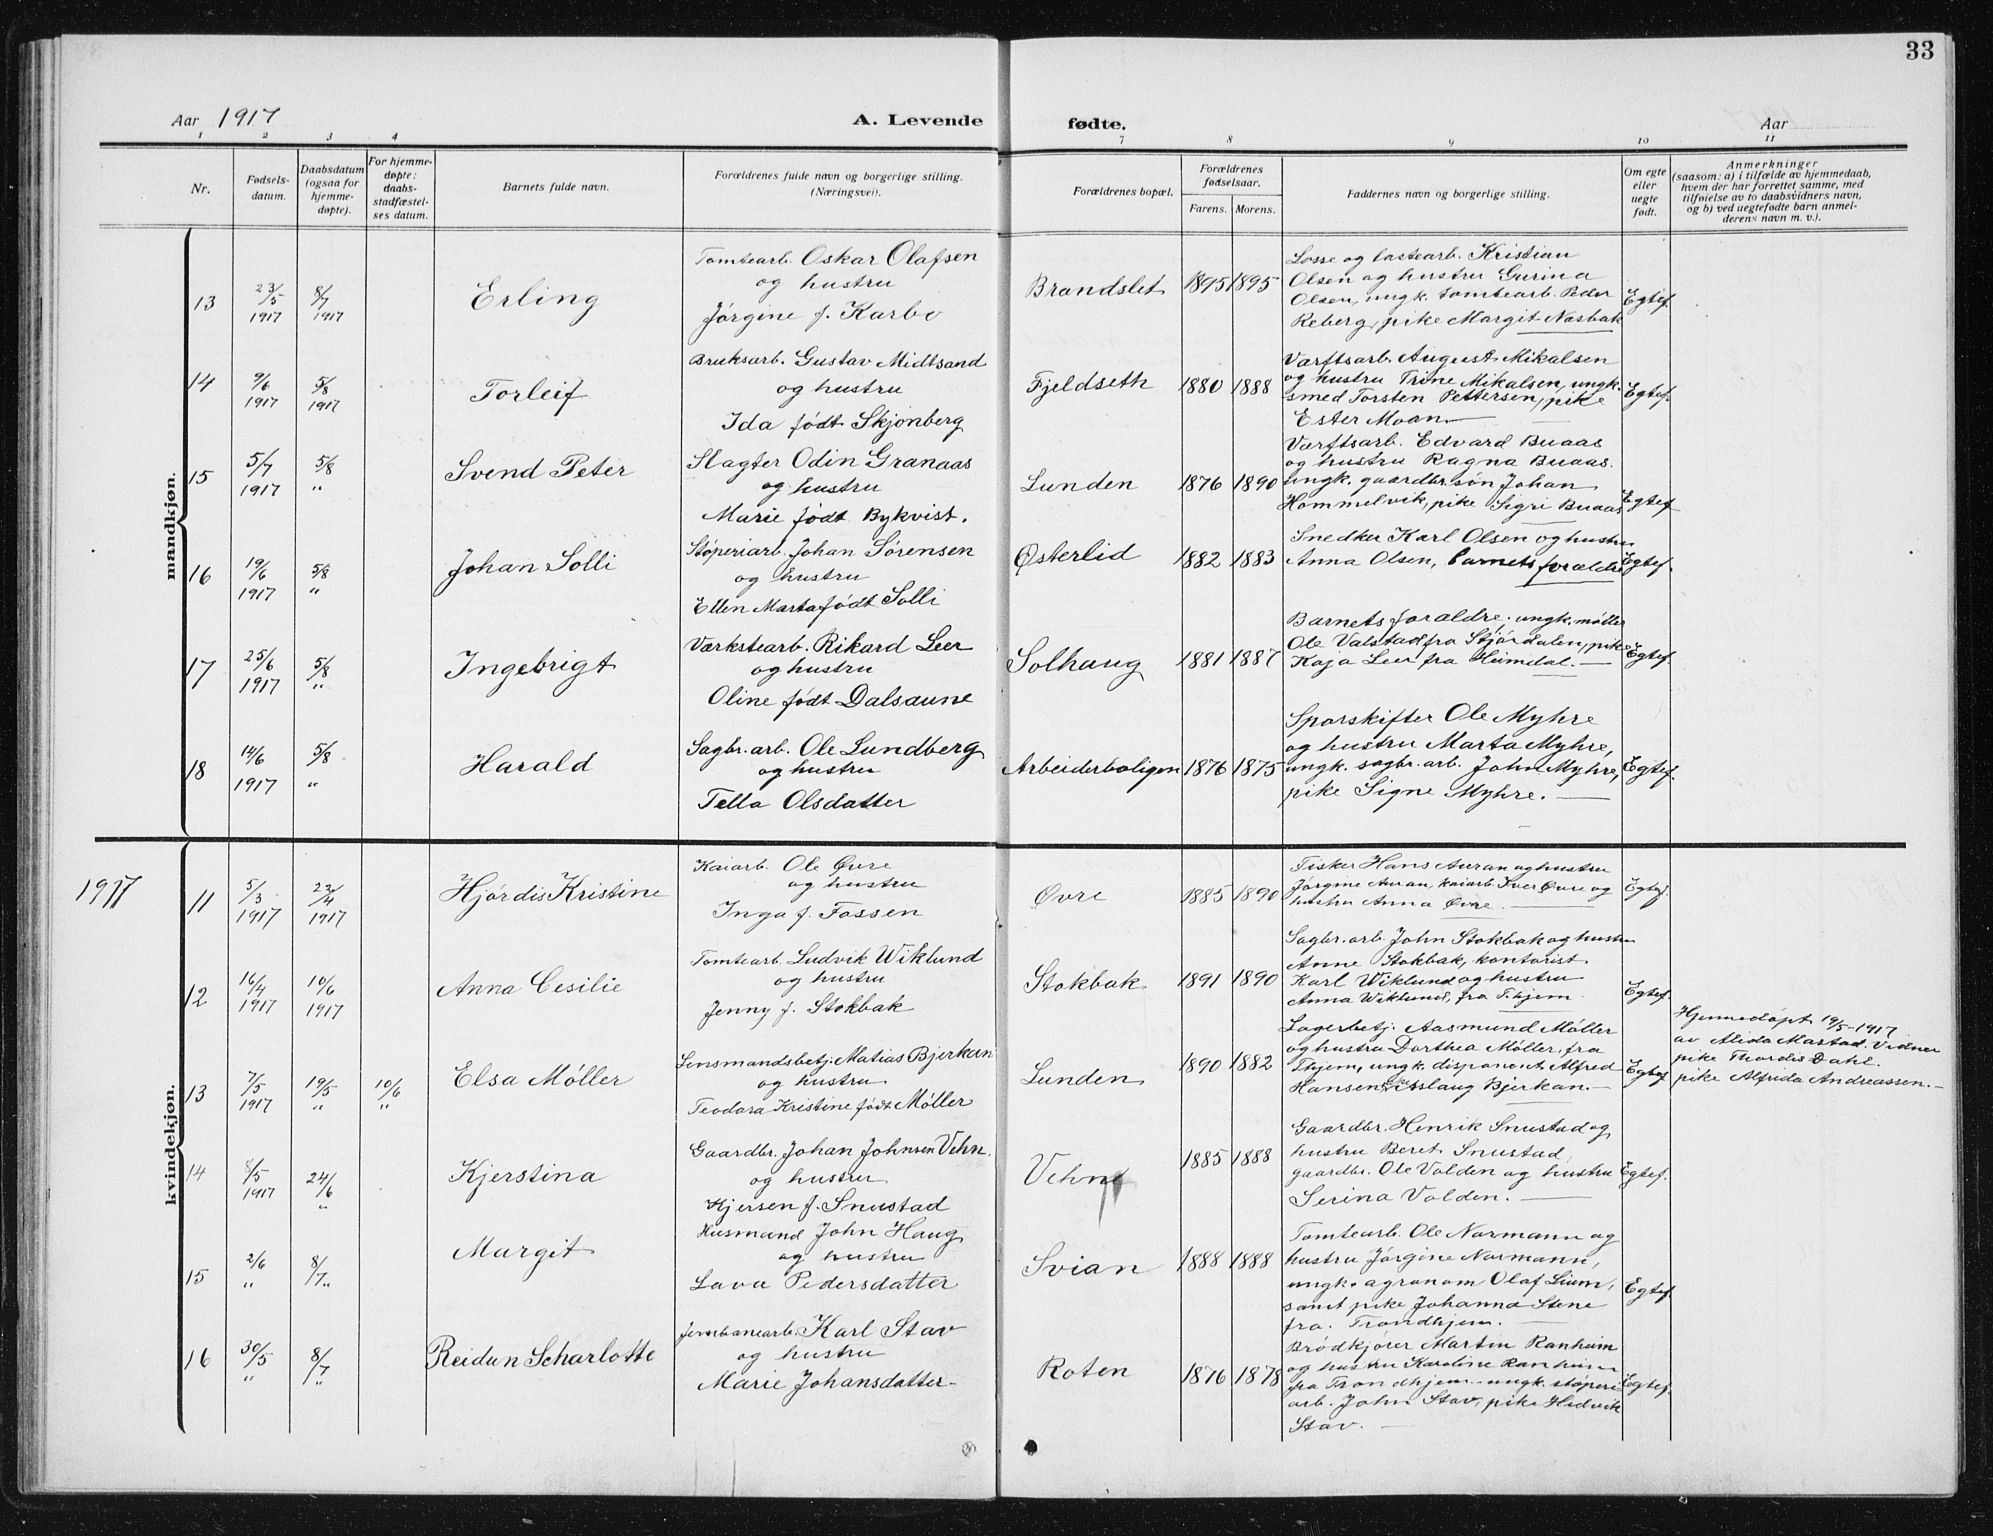 33
Aar 1917
A. Levende fødte.
Aar
1 2 3 4 7 8 9 10 11
Nr.
Fødsels-
datum.
Daabsdatum
(ogsaa for
hjemme-
døpte).
For hjemme-
døpte:
daabs-
stadfæstel-
ses datum.
Barnets fulde navn.
Forældrenes fulde navn og borgerlige stilling.
(Næringsvei).
Forældrenes bopæl.
Forældrenes
fødselsaar.
Farens. Morens.
Faddernes navn og borgerlige stilling.
Om egte
eller
uegte
født.
Anmerkninger
(saasom: a) i tilfælde av hjemmedaab,
hvem der har forrettet samme, med
tilføielse av to daabsvidners navn,
og b) ved uegtefødte barn anmel-
derens navn m. v.).
mandkjøn.
13
23/5
1917
8/7
1917
Erling
Tomtearb. Oskar Olafsen
og hustru
Jørgine f. Karbo
Brandslet
1895 1895
Losse og lastearb. Kristian
Olsen og hustru Gurina
Olsen, ungk. tomtearb. Peder
Reberg, pike Margit Nasbak
Egtef.
14
9/6
1917
5/8
1917
Torleif
Bruksarb. Gustav Midtsand
og hustru
Ida født Skjønberg
Fjeldseth
1880 1888
Værftsarb. August Mikalsen
og hustru Trine Mikalsen, ungk.
smed Torsten Pettersen, pike
Ester Moan
Egtef.
15
5/7
1917
5/8
"
Svend Peter
Slagter Odin Granaas
og hustru
Marie født Bykvist.
Lunden
1876 1890
Værftsarb. Edvard Buaas
og hustru Ragna Buaas.
ungk. gaardbr.søn Johan
Hommelvik, pike Sigri Buaas
Egtef
16
19/6
1917
5/8
"
Johan Solli
Støperiarb. Johan Sørensen
og hustru
Ellen Marta født Solli
Østerlid
1882 1883
Snedker Karl Olsen og hustru
Anna Olsen, Barnets forældre
Egtef.
17
25/6
1917
5/8
"
Ingebrigt
Værkstearb. Rikard Leer
og hustru
Oline født Dalsaune
Solhaug
1881 1887
Barnets forældre, ungk. møller
Ole Valstad fra Stjørdalen, pike
Kaja Leer fra Heimdal.
Egtef.
18
14/6
1917
5/8
"
Harald
Sagbr.arb. Ole Lundberg
og hustru
Tella Olsdatter
Arbeiderboligen
1876 1875
Sporskifter Ole Myhre
og hustru Marta Myhre,
ungk. sagbr. arb. John Myhre,
pike Signe Myhre.
Egtef.
1917
kvindekjøn.
11
5/3
1917
23/4
1917
Hjørdis Kristine
Kaiarb. Ole Øvre
og hustru
Inga f. Fossen
Øvre
1885 1890
Fisker Hans Auran og hustru
Jørgine Auran, kaiarb. Iver Øvre og
hustru Anna Øvre.
Egtef.
12
16/4
1917
10/6
1917
Anna Cesilie
Tomtearb. Ludvik Wiklund
og hustru
Jenny f. Stokbak
Stokbak
1891 1890
Sagbr. arb. John Stokbak og hustru
Anne Stokbak, kontorist
Karl Wiklund og hustru
Anna Wiklund, fra Thjem.
Egtef.
13
7/5
1917
19/5
"
10/6
"
Elsa Møller
Lensmandsbetj. Matias Bjerkan
og hustru
Teodora Kristine født Møller
Lunden
1890 1882
Lagerbetj. Aasmund Møller
og hustru Dorthea Møller, fra
Thjem, ungk. disponent Alfred
Hansen, Aslaug Bjerkan.
Egtef
Hjemmedøpt 19/5-1917
av Alida Mastad. Vidner
pike Thordis Dahl.
pike Alfrida Andreassen.
14
8/5
1917
24/6
"
Kjerstina
Gaardbr. Johan Johnsen Vehn.
og hustru
Kjersen f. Snustad
Vehne
1885 1888
Gaardbr. Henrik Snustad og
hustru Beret Snustad,
gaardbr. Ole Volden og hustru
Serina Volden.
Egtef.
15
2/6
"
8/7
"
Margit
Husmand John Haug
og hustru
Lava Pedersdatter
Svian
1888 1888
Tomtearb. Ole Normann og
hustru Jørgine Normann,
ungk. agronom Olaf Lium,
samt pike Johanna Stene
fra Trondhjem.
Egtef.
16
30/5
"
8/7
"
Reidun Scharlotte
Jernbanearb. Karl Stav
og hustru
Marie Johansdatter
Roten
1876 1878
Brødkjører Martin Ranheim
og hustru Karoline Ranheim
fra Trondhjem - ungk. støperi
arb. John Stav, pike Hedvik
Stav.
Egtef.